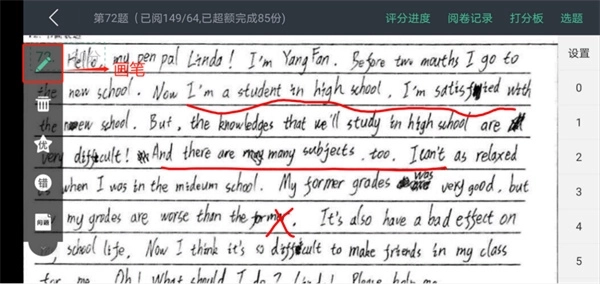 第72题（已阅149/64,已超额完成85份）
评分进度 阅卷记录 打分板 选题
设置
0
1
2
3
4
5
画笔
优
错
问题
72 Hello, my pen pal Linda! I'm Yang Fan. Before two mouths I go to
the new school. Now I'm a student in high school, I'm satisfied with
the new school. But, the knowledges that we'll study in high school are
very difficult! And there are many subjects, too. I can't as relaxed
as when I was in the mideum school. My former grades was very good, but
my grades are worse than the former. It's also have a bad effect on
my school life. Now I think it's so difficult to make friends in my class
for me. Oh! What should I do? Please help me